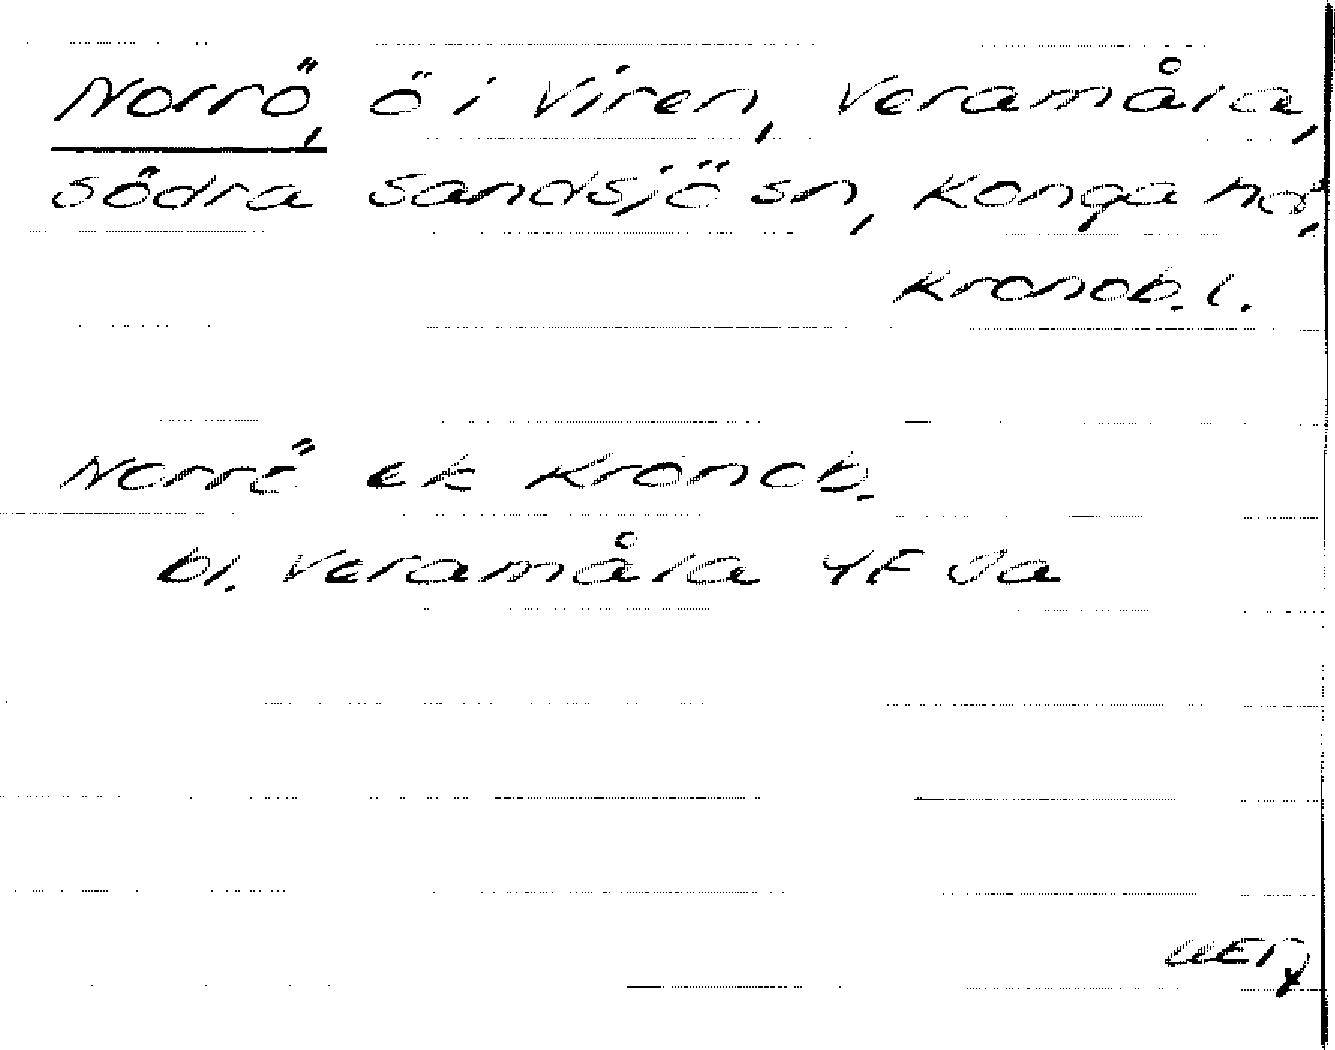 Norrö, ö i Viren, Veramåla,
Södra Sandsjö sn, Konga hd,
Kronob. l.
Norrö ek Kronob.
bl. Veramåla 4F Ja